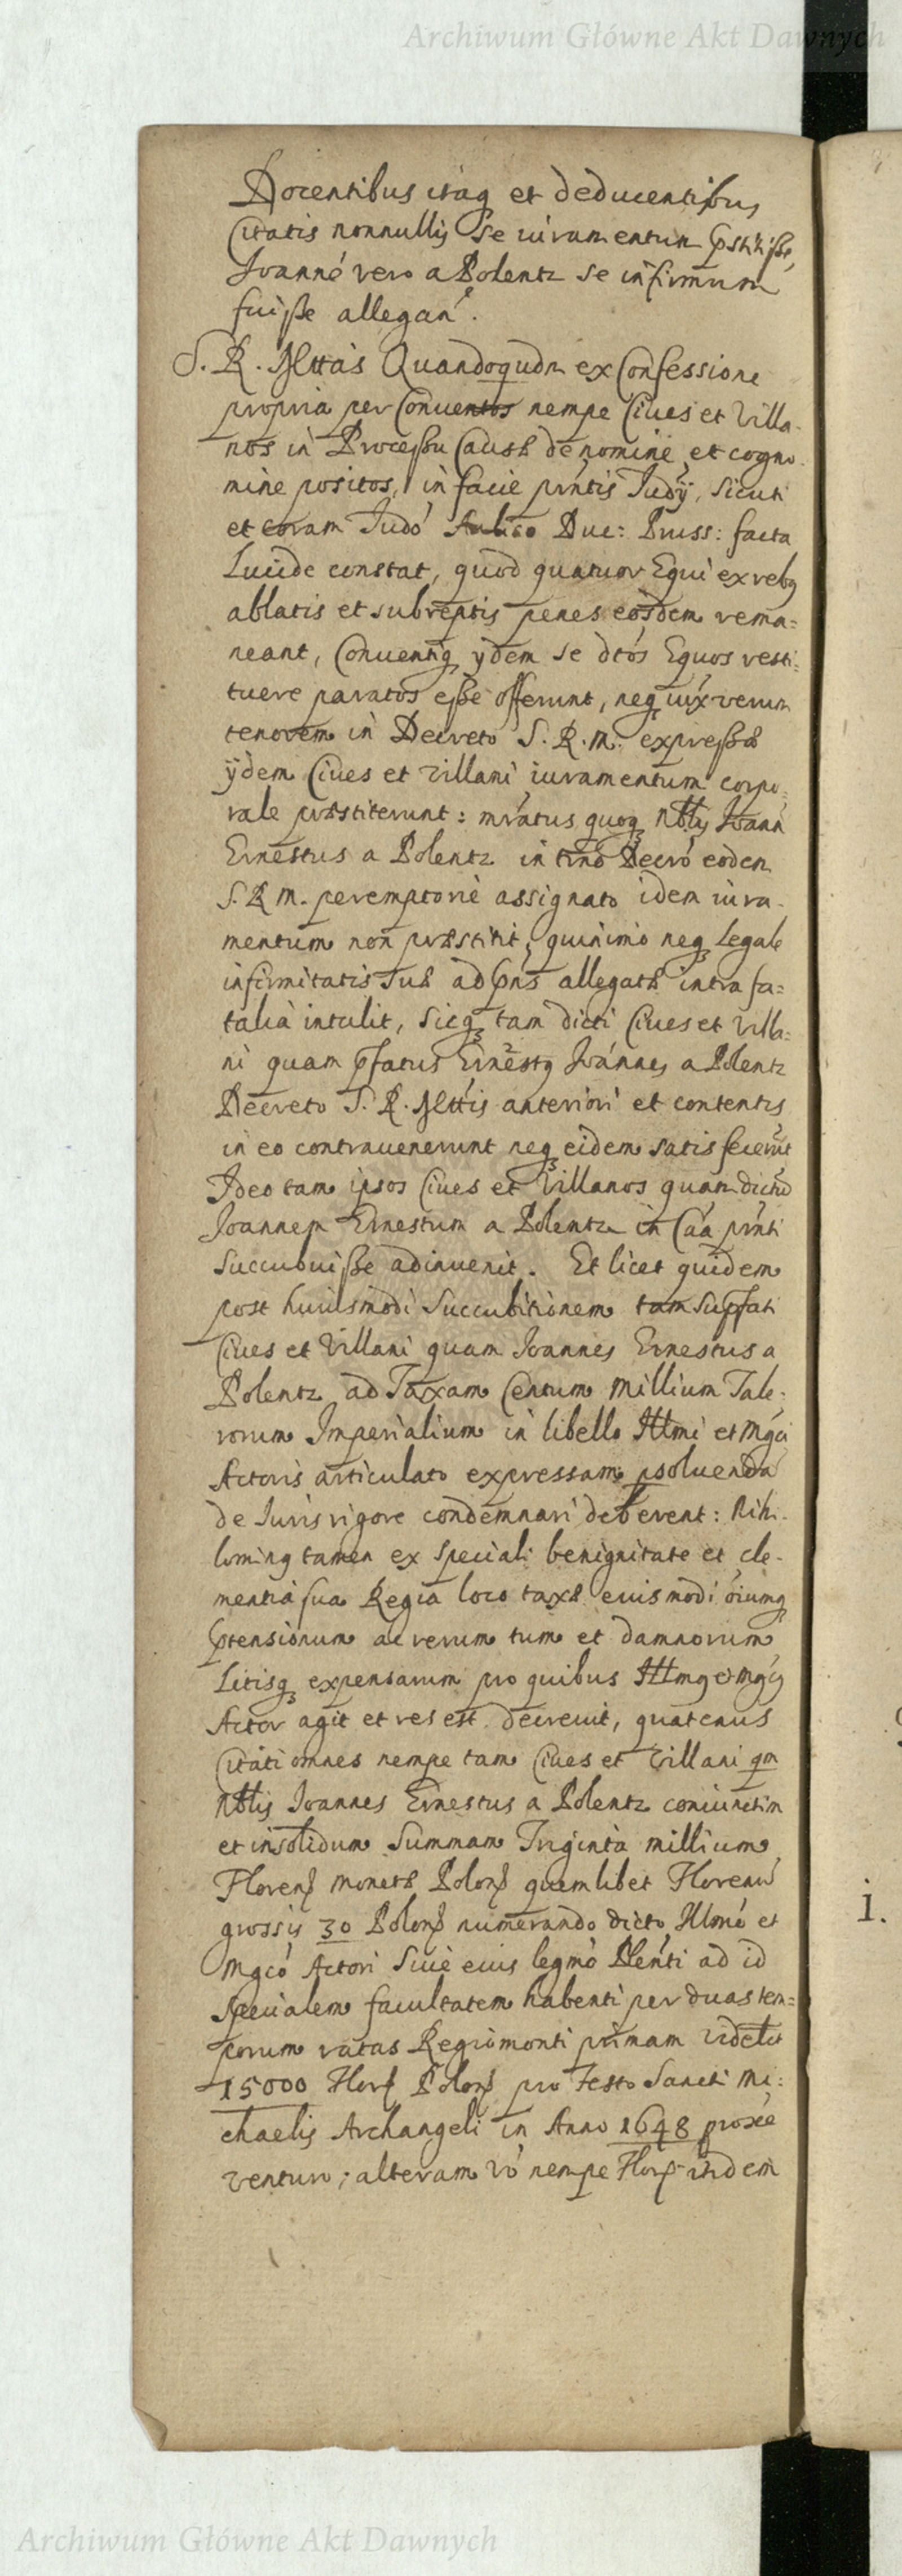 Archiwum Główne Akt Dawnych
Docentibus itaq et deducentibus
Citatis nonnullis se iuramentum pstitiße,
Joanné vero a Polentz se infirmum
fuiße allegan.
S. R. Mttas Quandoqudm ex Confessione
propria per Conuentos nempe Ciues et Villa-
nos in Proceßu Causæ de nomine et cogno-
mine positos, in facie pntis Judÿ, sicuti
et coram Judo Aulico Duc: Pruss: facta
Luude constat, quod quatuor Equi ex rebq
ablatis et subreptis penes eosdem rema=
neant, Conuentiq ÿdem se dtós Equos resti=
tuere paratos eße offerunt, neq iux verum
tenorem in Decreto S. R. M. expreßæ
ÿdem Ciues et Villani iuramentum corpo=
rale præstiterunt: mratus quoq Nblis Joann
Ernestus a Polentz in tmo Decro eodem
S. R. M. peremptorie assignato idem iura-
mentum non præstitit, quinimo neq Legale
infirmitatis suæ ad pns allegatæ intra fa=
talia intulit, sicq tam dicti Ciues et Villa=
ni quam pfatus Ernestq Joánnes a Polentz
Decreto S. R. Mttis anteriori et contentis
in eo contrauenerunt neq eidem satis fecerut
Ideo tam ipsos Ciues et Villanos quam dictu
Joannem Ernestum a Polentz in Caa pnti
succubuiße adinuenit. Et licet quidem
post huiusmodi succubitionem tam supfati
Ciues et Villani quam Joannes Ernestus a
Polentz ad Taxam Centum Millium Tale=
rorum Imperialium in libello Illmi et Mgci
Actoris articulato expressam psoluenda
de Juris rigore condemnari deberent: Nihi-
lominq tamen ex speciali benignitate et cle-
mentia sua Regia loco taxæ euismodi óiumq
ptensionum ac rerum tum et damnorum
Litisq expensarum pro quibus Illmq et Mgcq
Actor agit et res est decreuit, quatenus
Citati omnes nempe tam Ciues et Villani qm
Nblis Joannes Ernestus a Polentz coniunctim
et insolidum Summam Triginta millium
Floren Monetæ Polon quemlibet Florenu
grossis 30 Polon numerando dicto Illmo et
Mgco Actori siue eius legmo Plenti ad id
specialem facultatem habenti per duas tem=
porum ratas Regiomonti primam videlt
15000 Flor Polon pro Festo Sancti Mi=
chaelis Archangeli in Anno 1648 proxie
venturo; alteram vo nempe Flor itidem
i.
Archiwum Główne Akt Dawnych